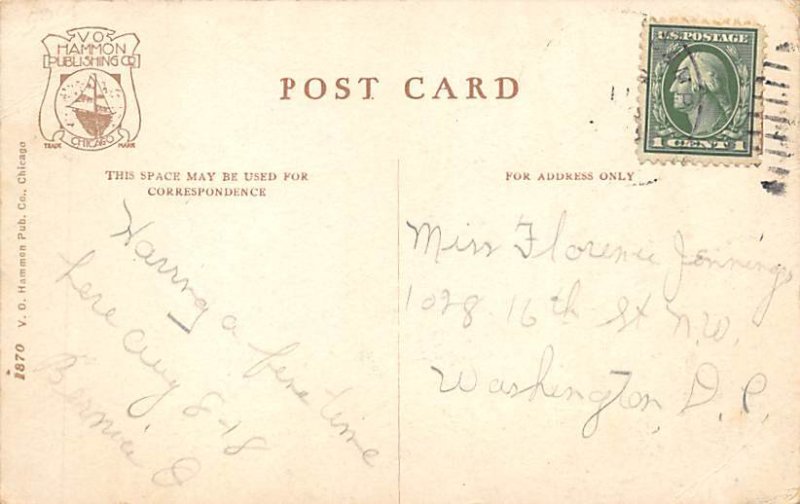 V O
HAMMON
PUBLISHING CO
CHICAGO
TRADE MARK
POST CARD
U.S. POSTAGE
1 CENT 1
THIS SPACE MAY BE USED FOR
CORRESPONDENCE
FOR ADDRESS ONLY
Having a fine time
here Aug 8-18
Bernice
Miss Florence Jennings
1028 16th St N.W.
Washington, D.C.
1870 V. O. Hammon Pub. Co., Chicago